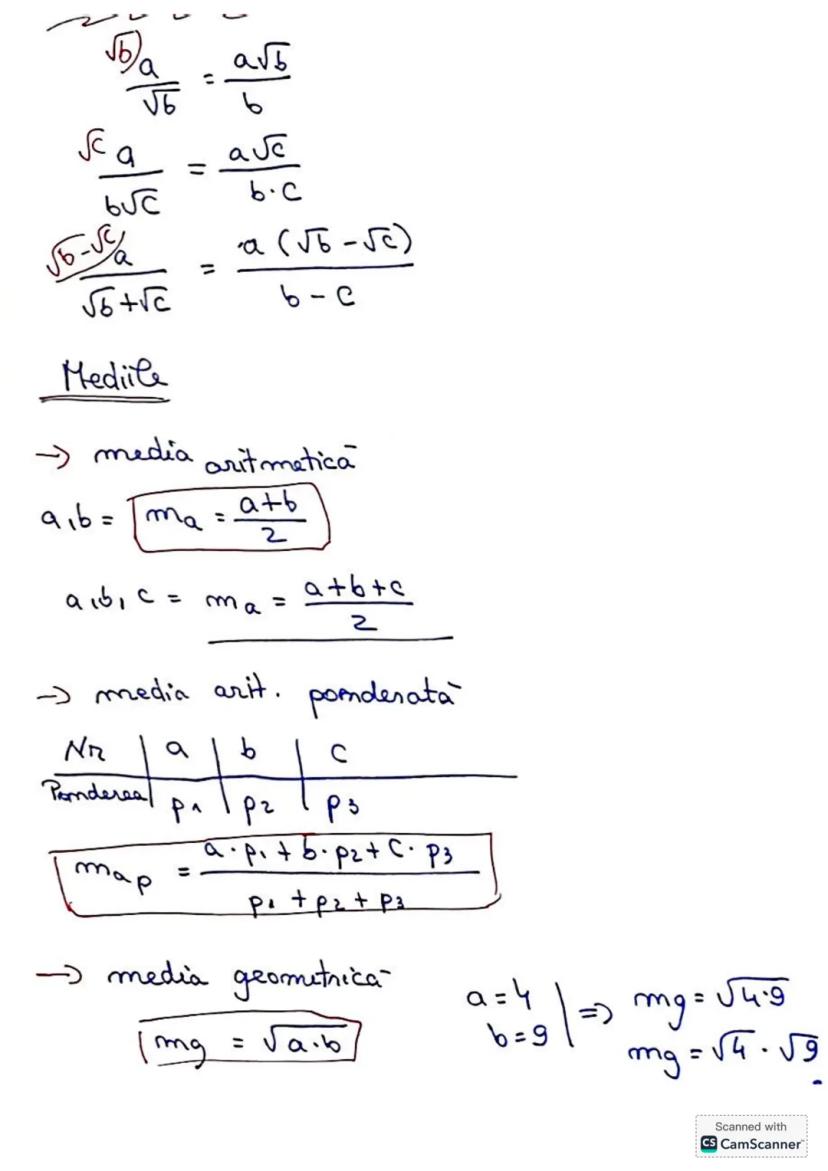 √b) a/√b = a√b/b
√c a/b√c = a√c/b·c
√b-√c) a/√b+√c = a(√b-√c)/b-c
Mediile
→ media aritmetică
a,b = ma = a+b/2
a,b,c = ma = a+b+c/2
→ media arit. ponderată
Nr | a | b | c
Ponderea | p1 | p2 | p3
map = a·p1+b·p2+c·p3/p1+p2+p3
→ media geometrică
mg = √a·b
a=4
b=9 | => mg = √4·9
mg = √4·√9
Scanned with
CS CamScanner